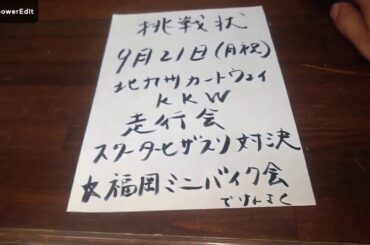 owerEdit
挑戦状
9月21日(月祝)
北九州カートウェイ
KKW
走行会
スクーターヒザスリ対決
福岡ミニバイク会